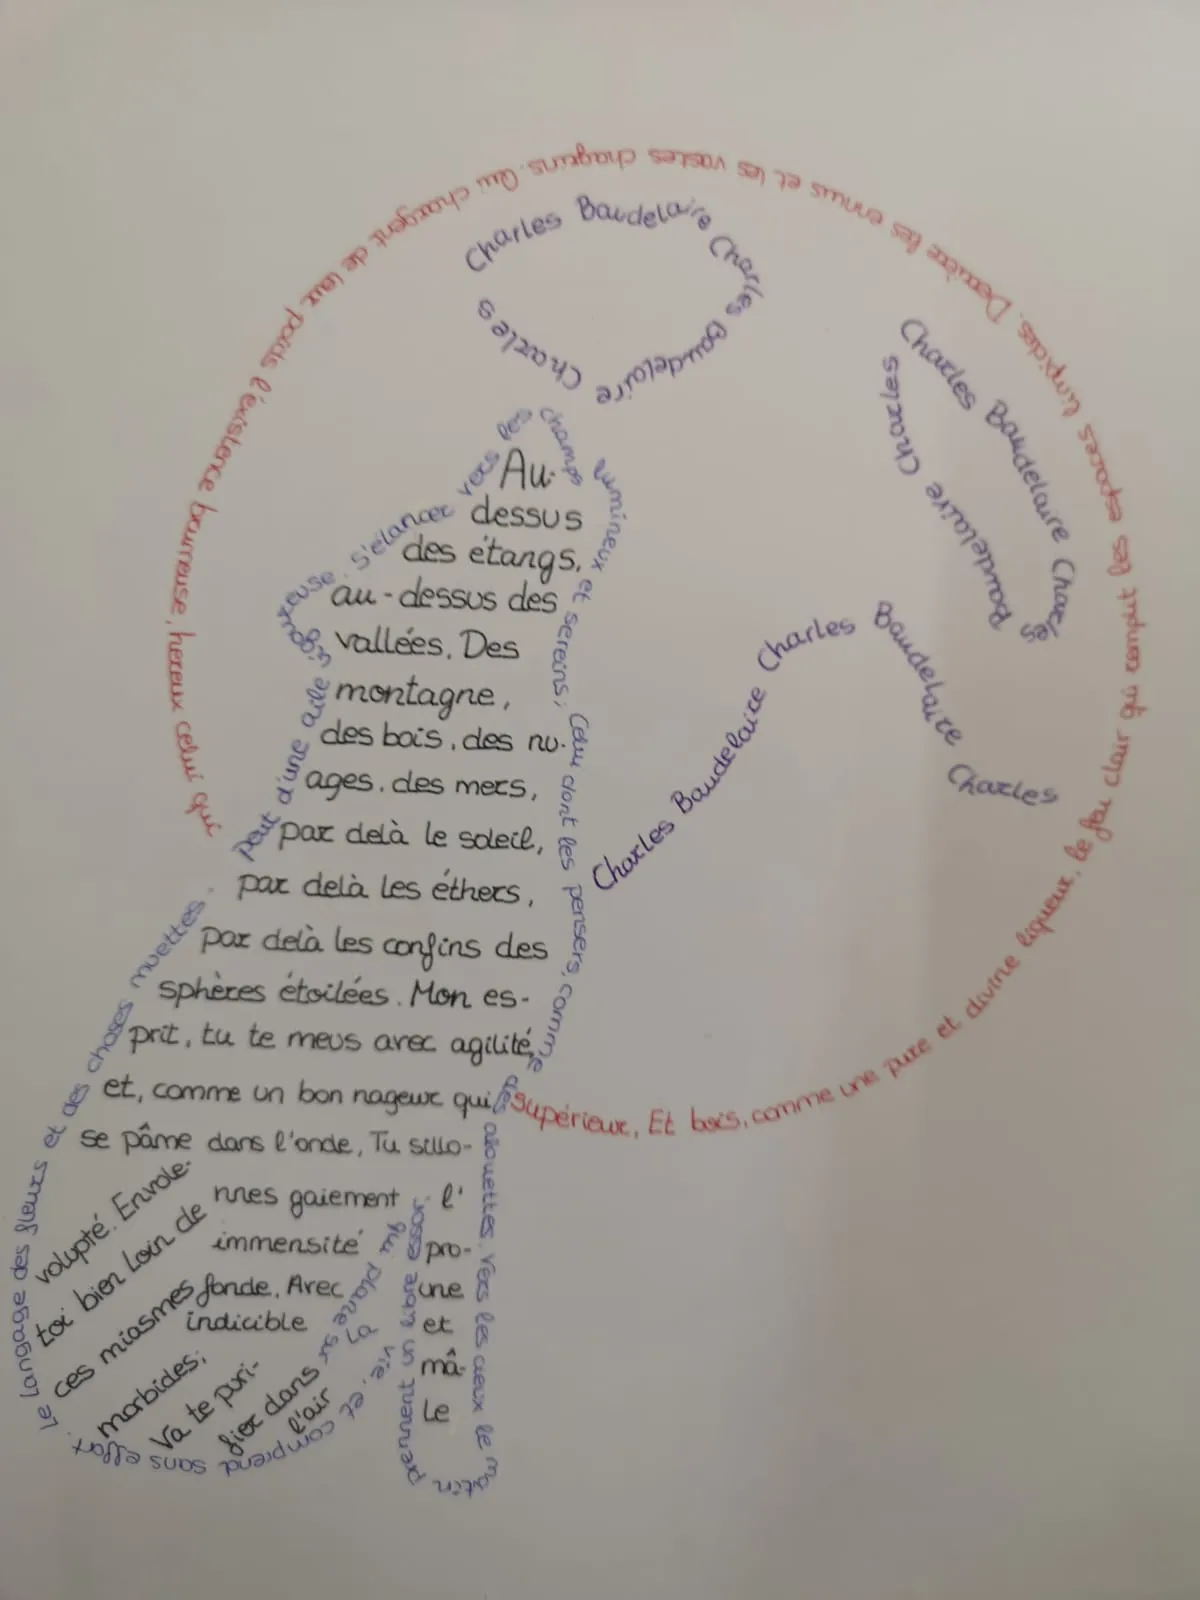 Au-
dessus
des étangs,
au-dessus des
vallées. Des
montagne,
des bois, des nu-
ages, des mers,
par delà le soleil,
par delà les éthers,
par delà les confins des
sphères étoilées. Mon es-
prit, tu te meus avec agilité,
et, comme un bon nageur qui
se pâme dans l'onde, Tu sillo-
nnes gaiement l'
immensité pro-
fonde. Avec une
indicible et
mâ
le
volupté. Envole-
toi bien Loin de
ces miasmes
morbides;
Va te puri-
fier dans
l'air
supérieur, Et bois, comme une pure et divine liqueur, le feu clair qui remplit les espaces limpides. Derrière les ennuis et les vastes chagrins. Qui chargent de leur poids l'existence brumeuse, heureux celui qui
peut d'une aile vigoureuse s'élancer vers les champs lumineux et sereins; Celui dont les pensers, comme des alouettes, Vers les cieux le matin prennent un libre essor. qui plane sur la vie, et comprend sans effort. Le langage des fleurs et des choses muettes.
Charles Baudelaire Charles Baudelaire Charles
Charles Baudelaire Charles Baudelaire Charles
Charles Baudelaire Charles Baudelaire Charles